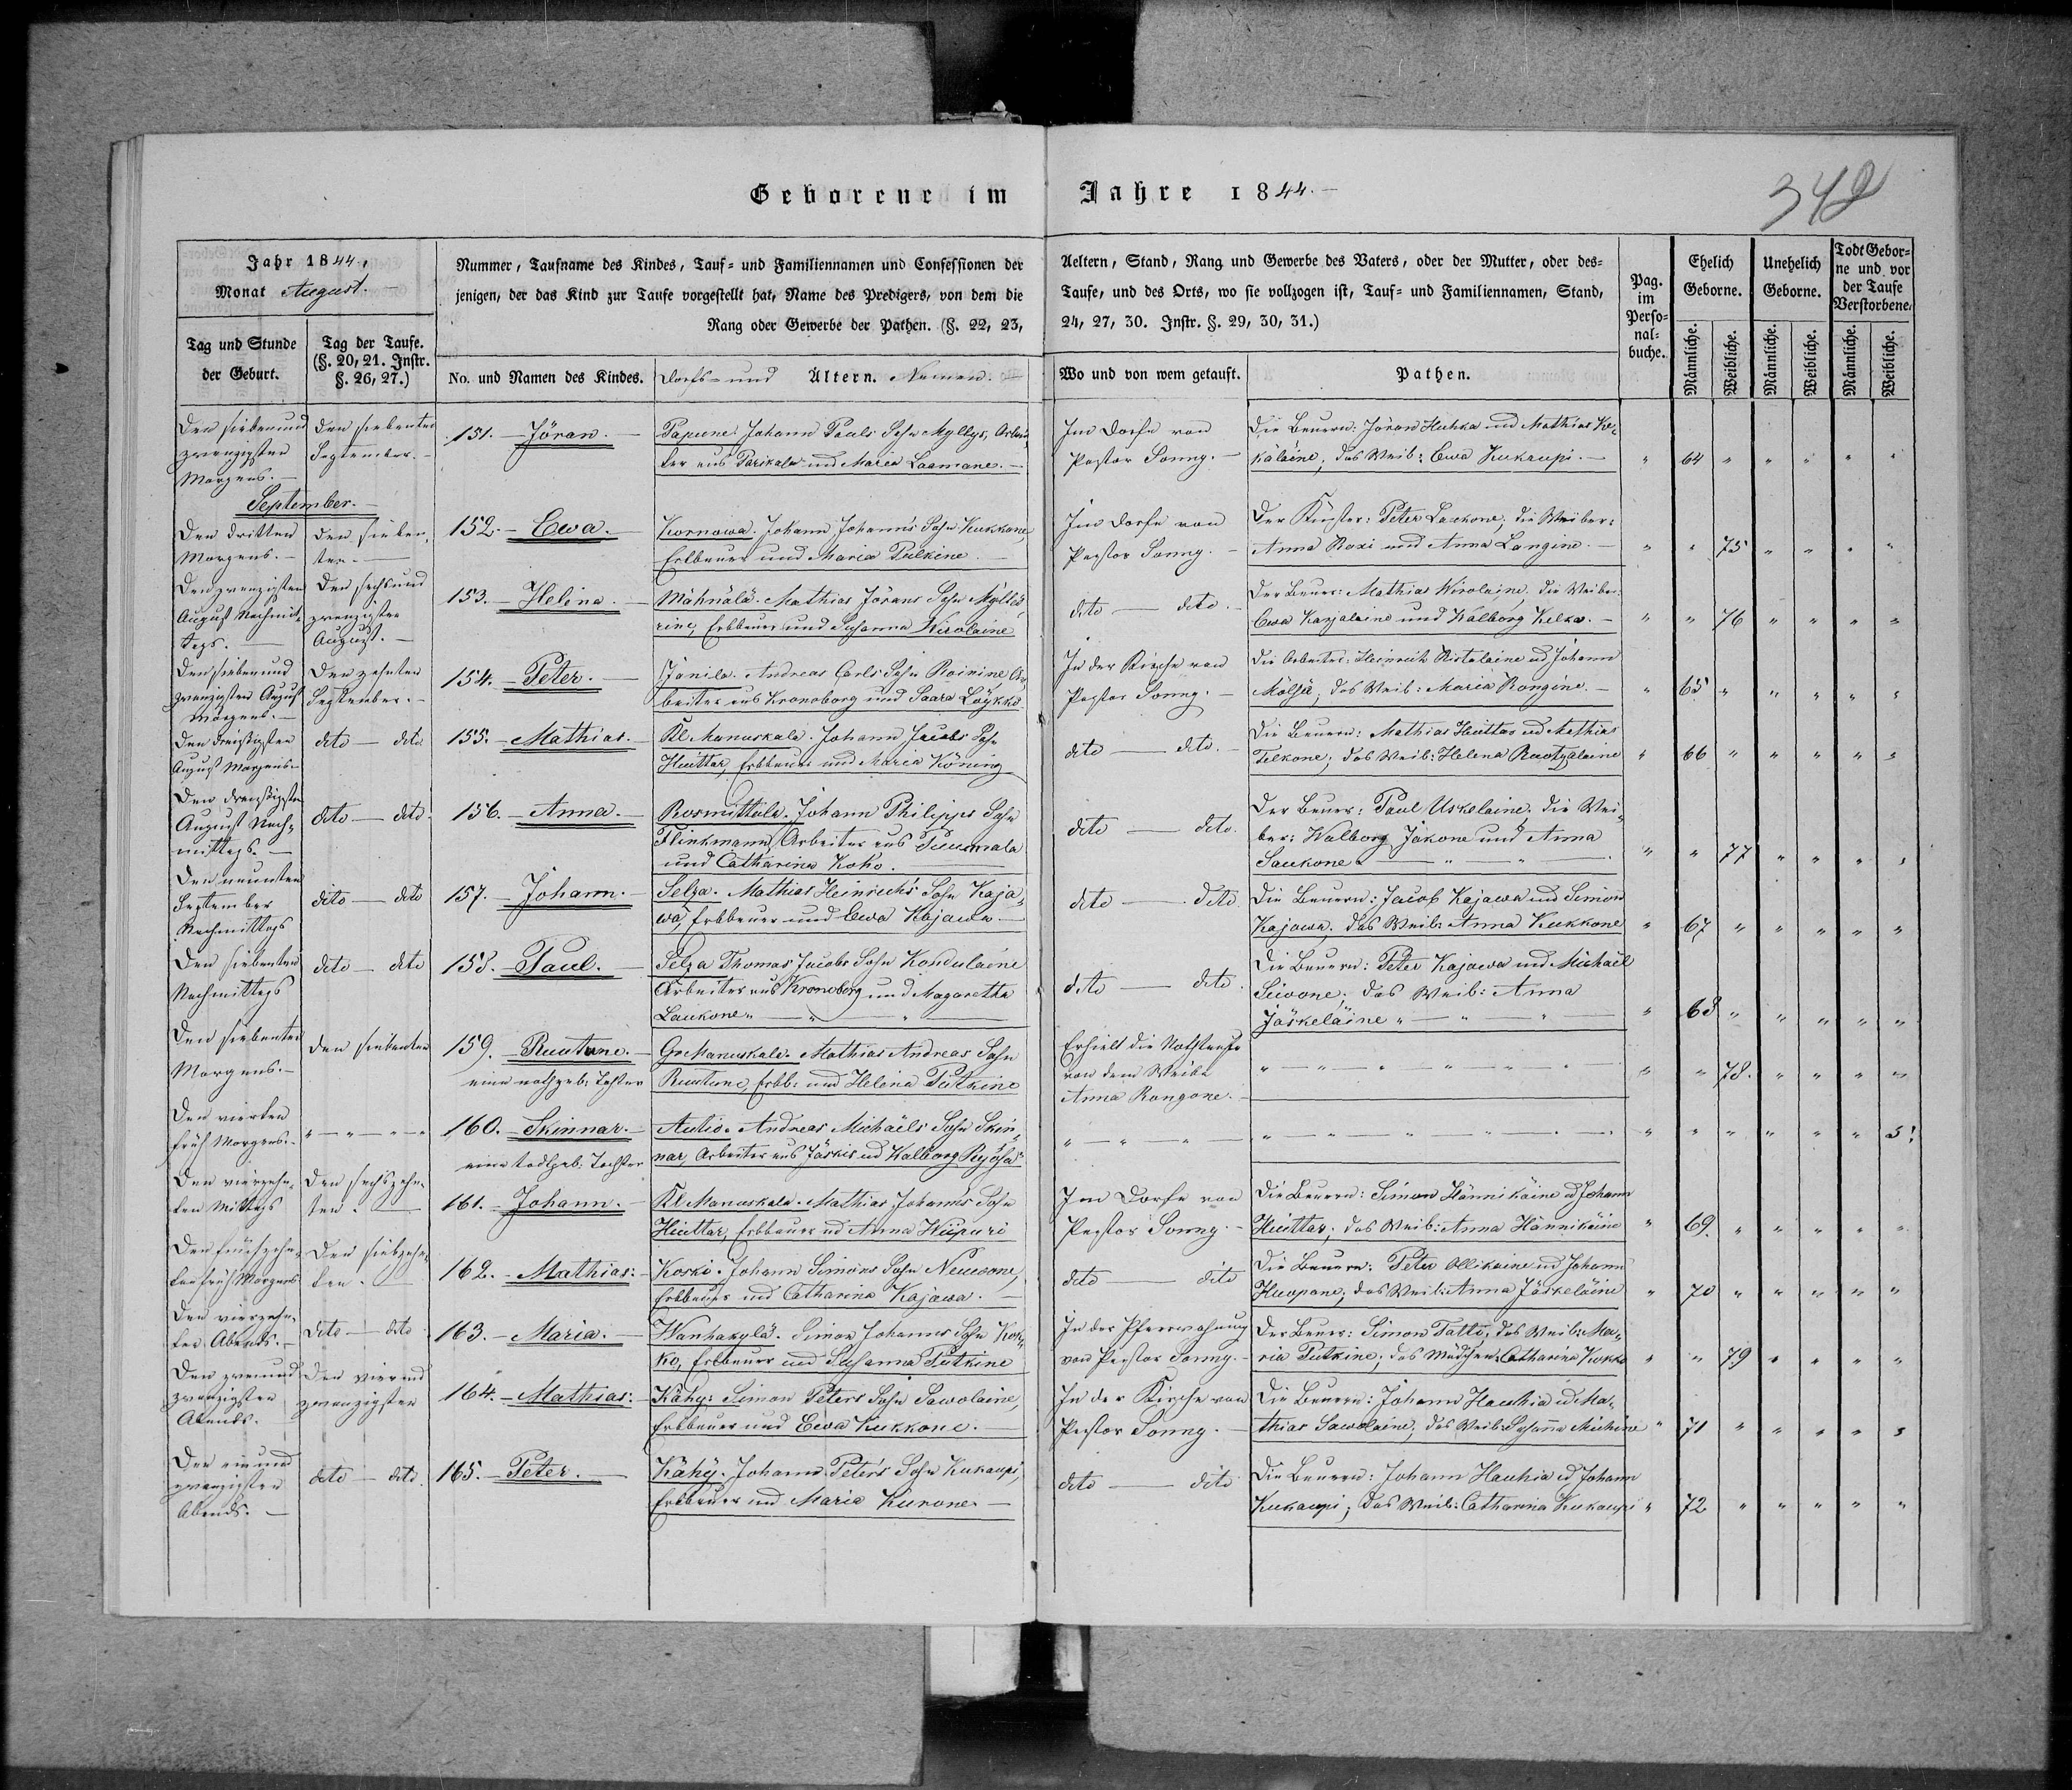 Geborene im Jahre 1844.
348
Jahr 1844,
Monat August.
Tag und Stunde
der Geburt.
Tag der Taufe.
(§. 20, 21. Instr.
§. 26, 27.)
Nummer, Taufname des Kindes, Tauf- und Familiennamen und Confessionen der Aeltern, Stand, Rang und Gewerbe des Vaters, oder der Mutter, oder des-
jenigen, der das Kind zur Taufe vorgestellt hat, Name des Predigers, von dem die Taufe, und des Orts, wo sie vollzogen ist, Tauf- und Familiennamen, Stand,
Rang oder Gewerbe der Pathen. (§. 22, 23, 24, 27, 30. Instr. §. 29, 30, 31.)
No. und Namen des Kindes.
Dorfs- und Ältern. Namen.
Wo und von wem getauft.
Pathen.
Pag.
im
Perso-
nal-
buche.
Ehelich
Geborne.
Unehelich
Geborne.
Todt Gebor-
ne und vor
der Taufe
Verstorbene.
Männliche. Weibliche. Männliche. Weibliche. Männliche. Weibliche.
Den sieben und
zwanzigsten
Morgens.
Den siebenten
September.
151. Jöran.
Papune. Johann Pauls Sohn Myllys, Arbei-
ter aus Parikala und Maria Laamane.
Im Dorfe von
Pastor Sonny.
Die Bauern: Jöran Huhka und Mathias Ke-
käläine; das Weib: Ewa Kukaupi.
64
September.
Den dritten
Morgens.
Den sieben-
ten.
152. Ewa.
Kornowa. Johann Johann's Sohn Kukkone,
Erbbauer und Maria Pulkine.
Im Dorfe von
Pastor Sonny.
Der Küster: Peter Laukone; die Weiber:
Anna Roxi und Anna Langine.
75
Den zwanzigsten
August Nachmit-
tags.
Den sechs und
zwanzigsten
August.
153. Helina.
Mähnälä. Mathias Jörans Sohn Myllä-
rine, Erbbauer und Susanna Wirolaine
dito dito.
Der Bauer: Mathias Wirolaine, die Weiber:
Ewa Karjalaine und Walborg Kelka.
76
Den sieben und
zwanzigsten August
Morgens.
Den zehnten
September.
154. Peter.
Jänila. Andreas Carls Sohn Roinine Ar-
beiter aus Kronoborg und Saara Löykkö
In der Kirche von
Pastor Sonny.
Die Arbeiter: Heinrich Ristolaine und Johann
Mölsä; das Weib: Maria Rongine.
65
Den dreißigsten
August Morgens
dito dito
155. Mathias.
Kl Manuskala. Johann Jacobs Sohn
Huittar, Erbbauer und Maria Köning
dito dito.
Die Bauern: Mathias Huittar und Mathias
Telkone; das Weib: Helena Ruotzalaine
66
Den dreißigsten
August Nach-
mittags.
dito dito.
156. Anna.
Rosmittula. Johann Philipps Sohn
Flinkmann, Arbeiter aus Puumala
und Catharina Koko.
dito dito.
Der Bauer: Paul Uskolaine; die Wei-
ber: Walborg Jakone und Anna
Saukone
77
Den neunten
September
Nachmittags
dito dito
157. Johann.
Selza. Mathias Heinrichs Sohn Kaja-
wa, Erbbauer und Ewa Kajawa
dito dito.
Die Bauern: Jacob Kajawa und Simon
Kajawa; das Weib: Anna Kukkone
67
Den siebenten
Nachmittags
dito dito
158. Paul.
Selza Thomas Jacobs Sohn Kondulaine
Arbeiter aus Kronoborg und Magaretha
Laukone
dito dito.
Die Bauern: Peter Kajawa und Michaël
Siivone; das Weib: Anna
Jäskeläine
68
Den siebenten
Morgens.
Den siebenten
159. Ruutune.
eine nothgeb: Tochter
Gr Manuskala. Mathias Andreas Sohn
Ruutune, Erbb: und Helina Putkine
Erhielt die Nothtaufe
von dem Weibe
Anna Rongone.
78.
Den vierten
früh Morgens.
160. Skinnar.
eine todtgeb: Tochter
Autio. Andreas Michaëls Sohn Skin-
nar, Arbeiter aus Jäskis und Walborg
5!
Den vierzehn-
ten Mittags
Den sechszehn-
ten.
161. Johann.
Kl Manuskala. Mathias Johanns Sohn
Huittar, Erbbauer und Anna Wiipuri
Im Dorfe von
Pastor Sonny.
Die Bauern: Simon Hännikäine und Johann
Huittar; das Weib: Anna Hännikäine
69.
Den fünfzehn-
ten früh Morgens
Den siebzehn-
ten.
162. Mathias:
Koski. Johann Simons Sohn Neuwone,
Erbbauer und Catharina Kajawa.
dito dito
Die Bauern: Peter Ollikaine und Johann
Huopane; das Weib: Anna Jäskeläine
70
Den vierzehn-
ten Abends.
dito dito
163. Maria.
Wanhakylä. Simon Johanns Sohn Kok-
ko, Erbbauer und Susanna Putkine
In der Pfarrwohnung
von Pastor Sonny.
Der Bauer: Simon Tatti; das Weib: Ma-
ria Putkine; das Mädchen: Catharina Kokko
79
Den zwei und
zwanzigsten
Abends.
Den vier und
zwanzigsten
164. Mathias:
Kähy: Simon Peters Sohn Sawolaine,
Erbbauer und Ewa Kukkone.
In der Kirche von
Pastor Sonny.
Die Bauern: Johann Hauhia und Ma-
thias Sawolaine; das Weib: Susanna
71
Den ein und
zwanzigsten
Abends.
dito dito.
165. Peter.
Kähy. Johann Peters Sohn Kukaupi,
Erbbauer und Maria Kurone
dito dito
Die Bauern: Johann Hauhia und Johann
Kukaupi; das Weib: Catharina Kukaupi
72